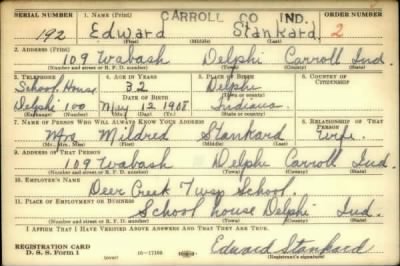 SERIAL NUMBER 1. NAME (Print) CARROLL CO IND. ORDER NUMBER
192 Edward Stankard 2
(First) (Middle) (Last)
2. ADDRESS (Print)
109 Wabash Delphi Carroll Ind.
(Number and street or R. F. D. number) (Town) (County) (State)
3. TELEPHONE 4. AGE IN YEARS 5. PLACE OF BIRTH 6. COUNTRY OF CITIZENSHIP
School House 32 Delphi
DATE OF BIRTH (Town or county)
Delphi 100 May 12 1908 Indiana
(Exchange) (Number) (Mo.) (Day) (Yr.) (State or country)
7. NAME OF PERSON WHO WILL ALWAYS KNOW YOUR ADDRESS 8. RELATIONSHIP OF THAT PERSON
Mrs Mildred Stankard Wife.
(Mr., Mrs., Miss) (First) (Middle) (Last)
9. ADDRESS OF THAT PERSON
109 Wabash Delphi Carroll Ind.
(Number and street or R. F. D. number) (Town) (County) (State)
10. EMPLOYER'S NAME
Deer Creek Twsp School.
11. PLACE OF EMPLOYMENT OR BUSINESS
School house Delphi Ind.
(Number and street or R. F. D. number) (Town) (County) (State)
I AFFIRM THAT I HAVE VERIFIED ABOVE ANSWERS AND THAT THEY ARE TRUE.
REGISTRATION CARD
D. S. S. Form 1 (over) 16-17105 Edward Stankard
(Registrant's signature)